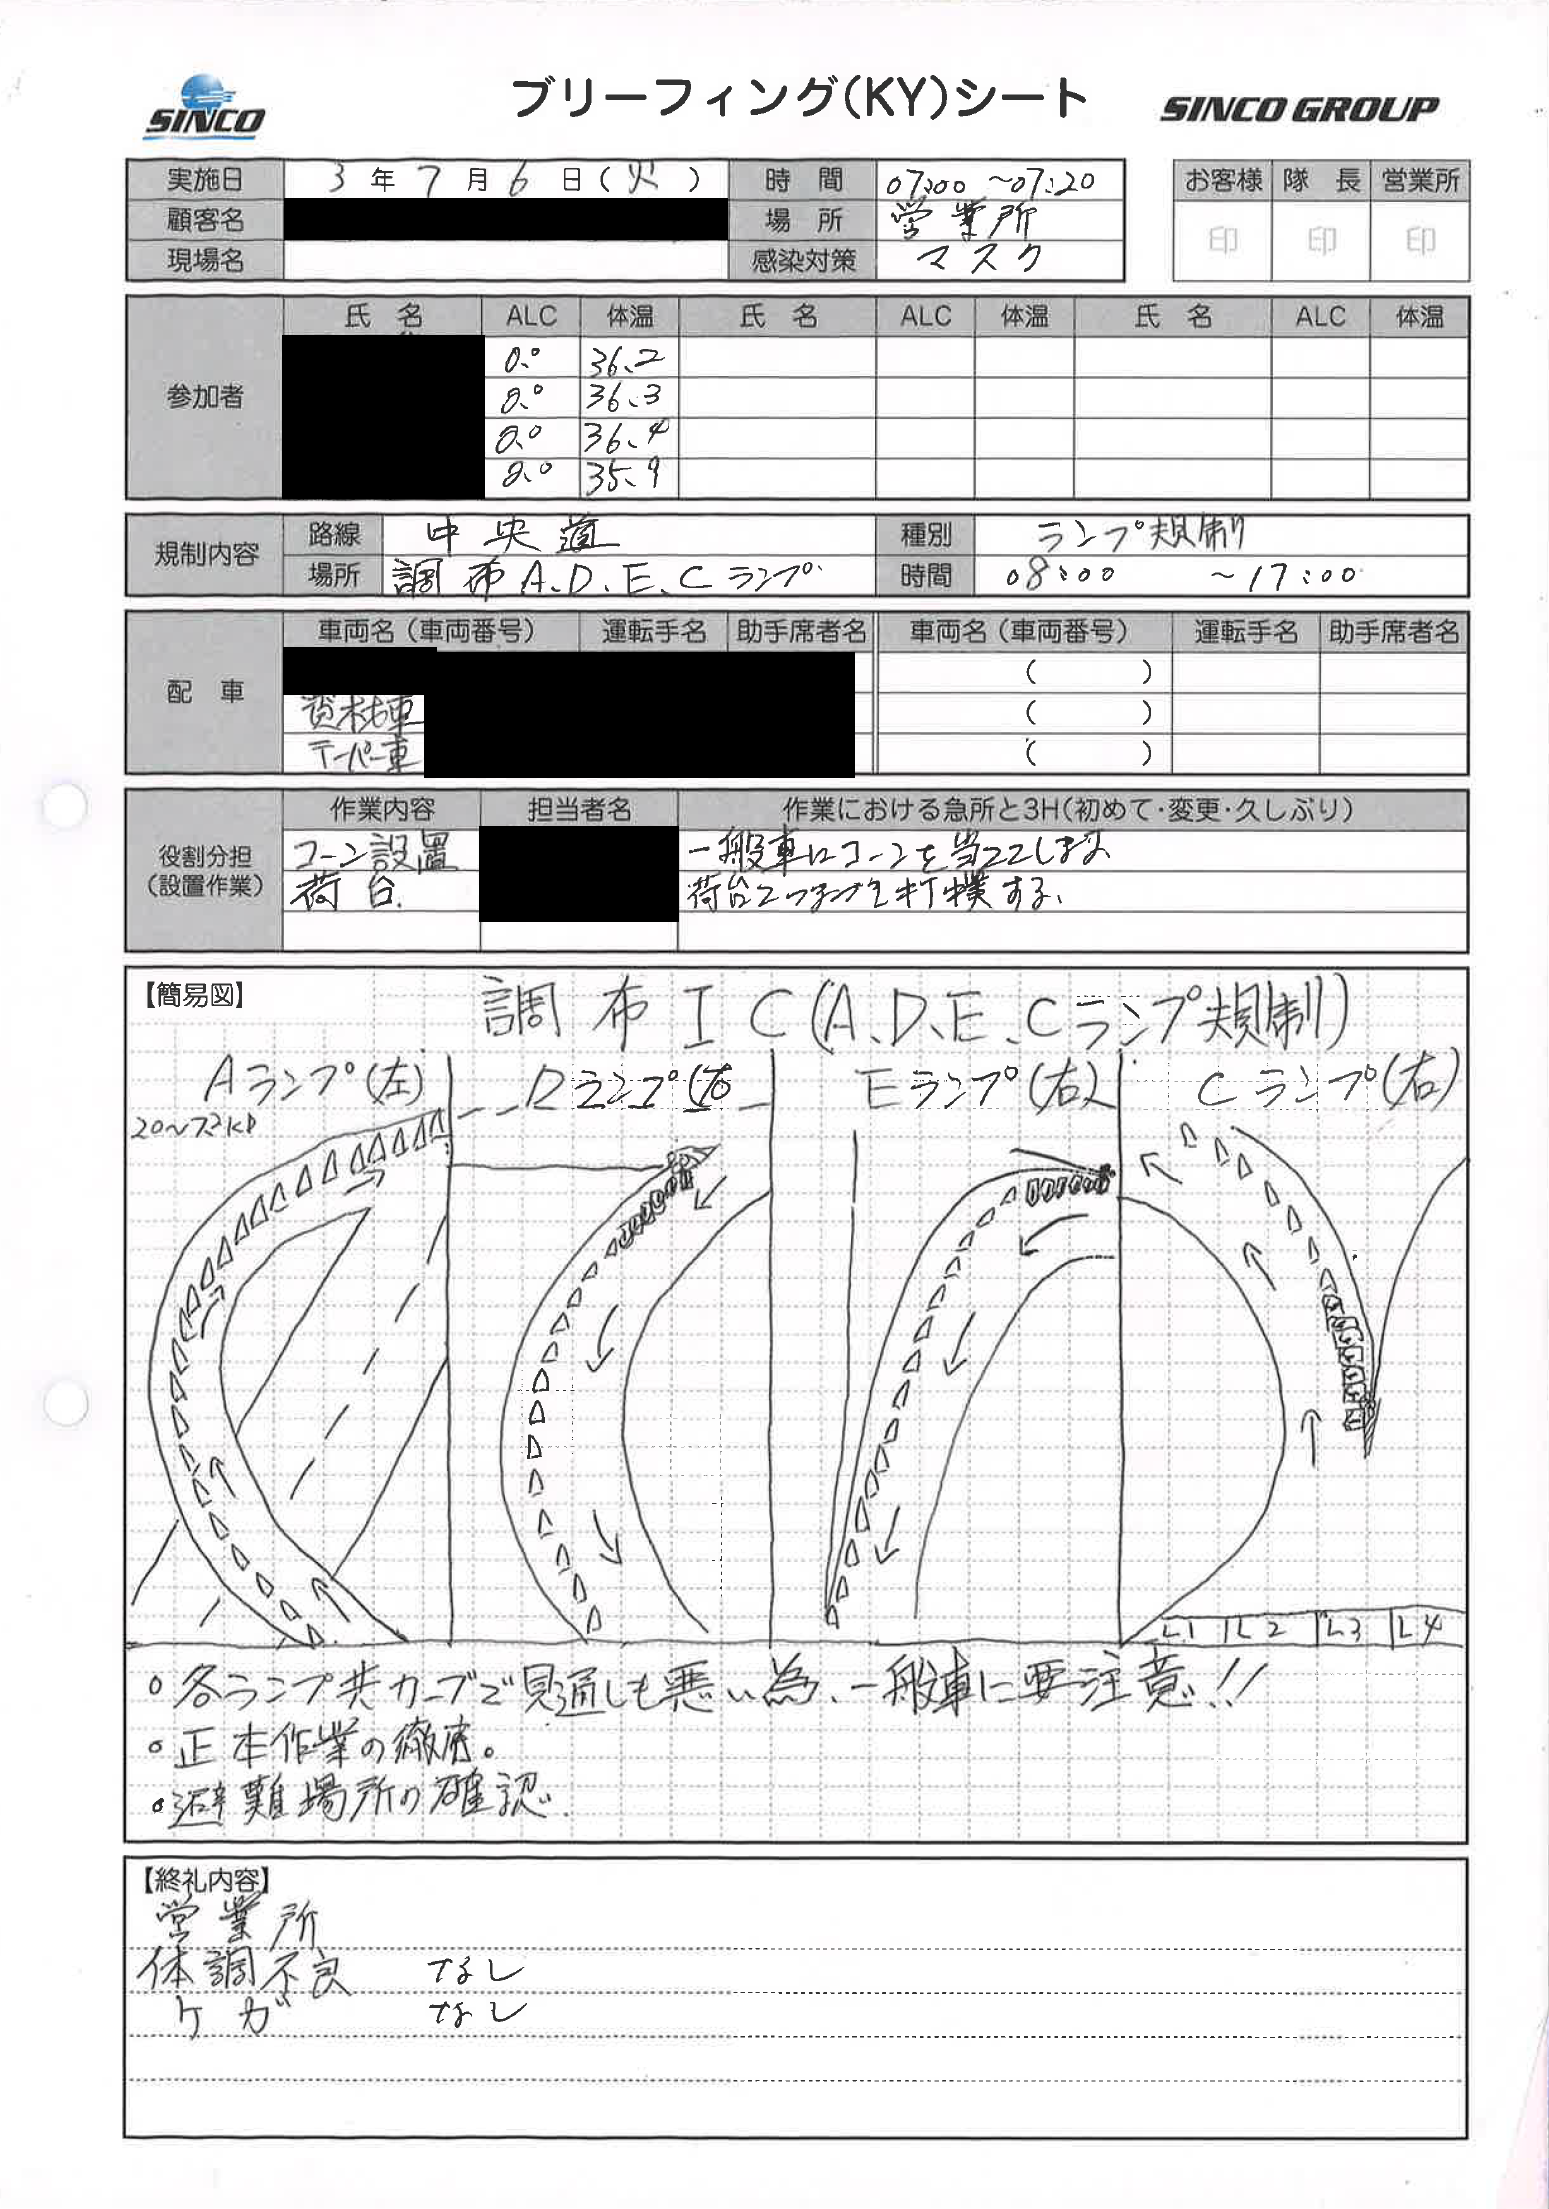 SINCO
ブリーフィング(KY)シート
SINCO GROUP
実施日 3年7月6日(火) 時間 07:00 ~07:20
お客様 隊長 営業所
顧客名 場所 営業所
印 印 印
現場名 感染対策 マスク
参加者 氏名 ALC 体温 氏名 ALC 体温 氏名 ALC 体温
0.0 36.2
0.0 36.3
0.0 36.4
0.0 35.9
規制内容 路線 中央道 種別 ランプ規制
場所 調布A.D.E.Cランプ 時間 08:00 ~17:00
配車 車両名(車両番号) 運転手名 助手席者名 車両名(車両番号) 運転手名 助手席者名
( )
資材車 ( )
テーパー車 ( )
役割分担(設置作業) 作業内容 担当者名 作業における急所と3H(初めて・変更・久しぶり)
コーン設置 一般車にコーンを当ててしまう
荷台. 荷台でつまづき打撲する、
【簡易図】 調布IC(A.D.E.Cランプ規制)
Aランプ(左) Dランプ(右 Eランプ(右) Cランプ(右)
L1 L2 L3 L4
○各ランプ共カーブで見通しも悪い為、一般車に要注意!!
○正本作業の徹底。
○避難場所の確認.
【終礼内容】
営業所
体調不良 なし
ケガ なし